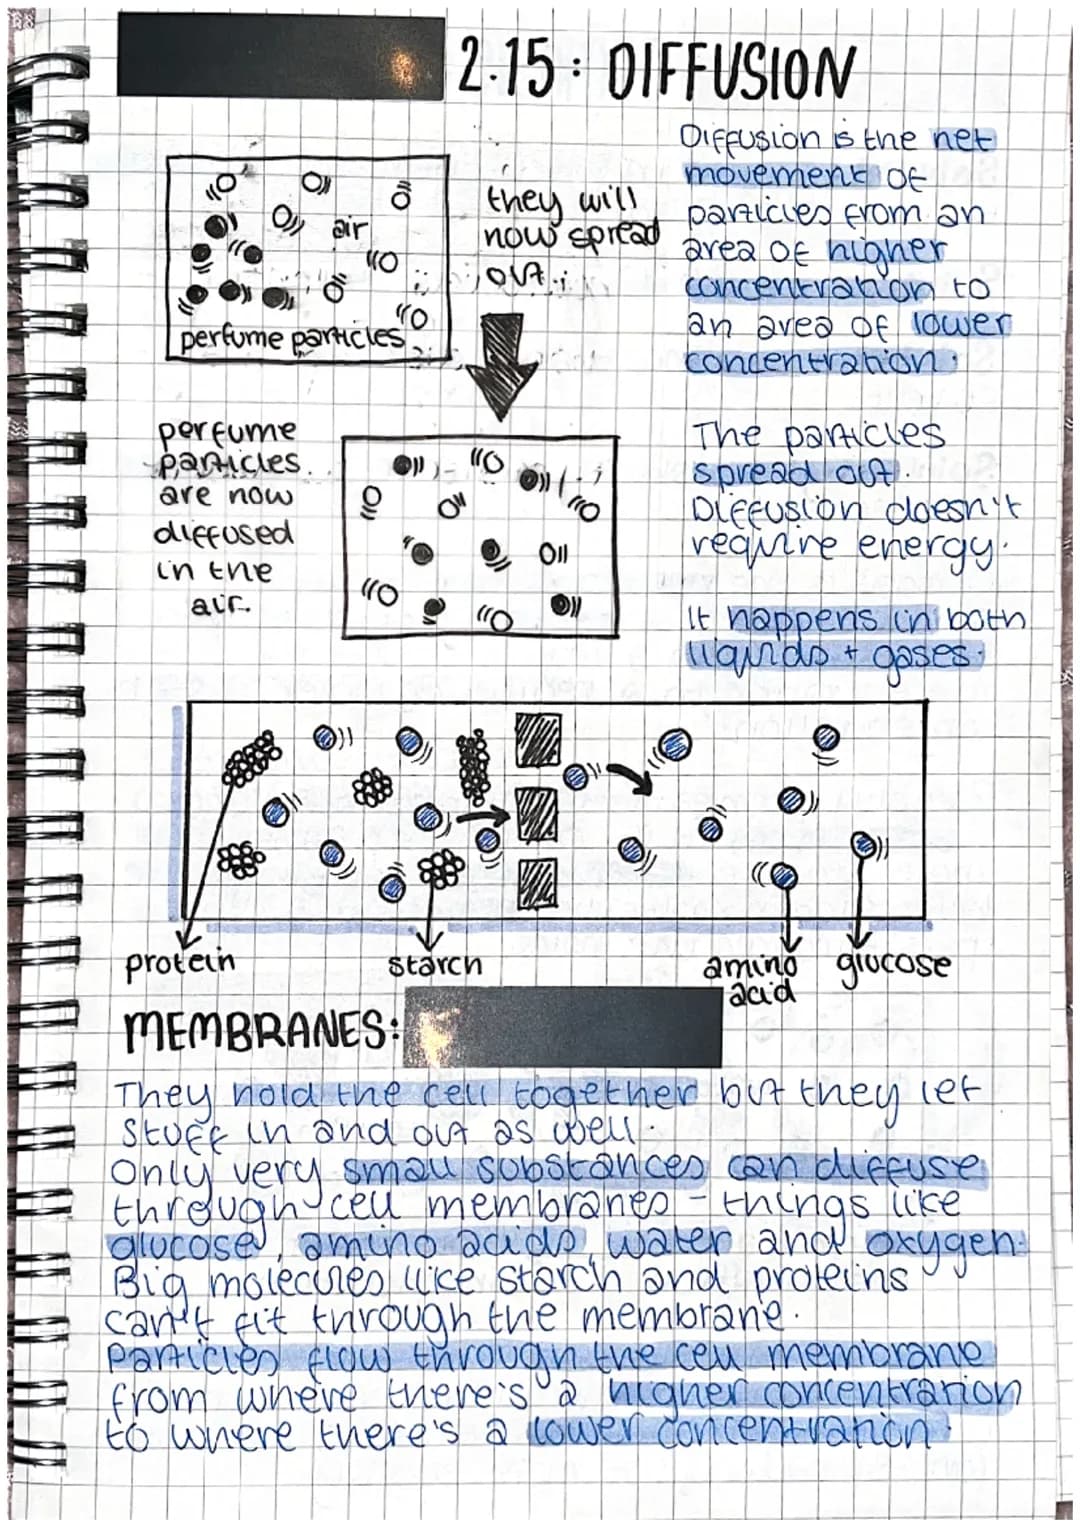 2.15: DIFFUSION
Diffusion is the net
movement of
particles from an
area of higher
concentration to
an area of lower
concentration.
air
perfume particles
they will
now spread
out.
perfume
particles
are now
diffused
in the
air.
The particles
spread out.
Diffusion doesn't
require energy.
It happens in both
liquids + gases.
protein
starch
amino
acid
glucose
MEMBRANES:
They hold the cell together but they let
stuff in and out as well.
Only very small substances can diffuse
through cell membranes - things like
glucose, amino acids, water and oxygen.
Big molecules like starch and proteins
can't fit through the membrane.
Particles flow through the cell membrane
from where there's a higher concentration
to where there's a lower concentration.